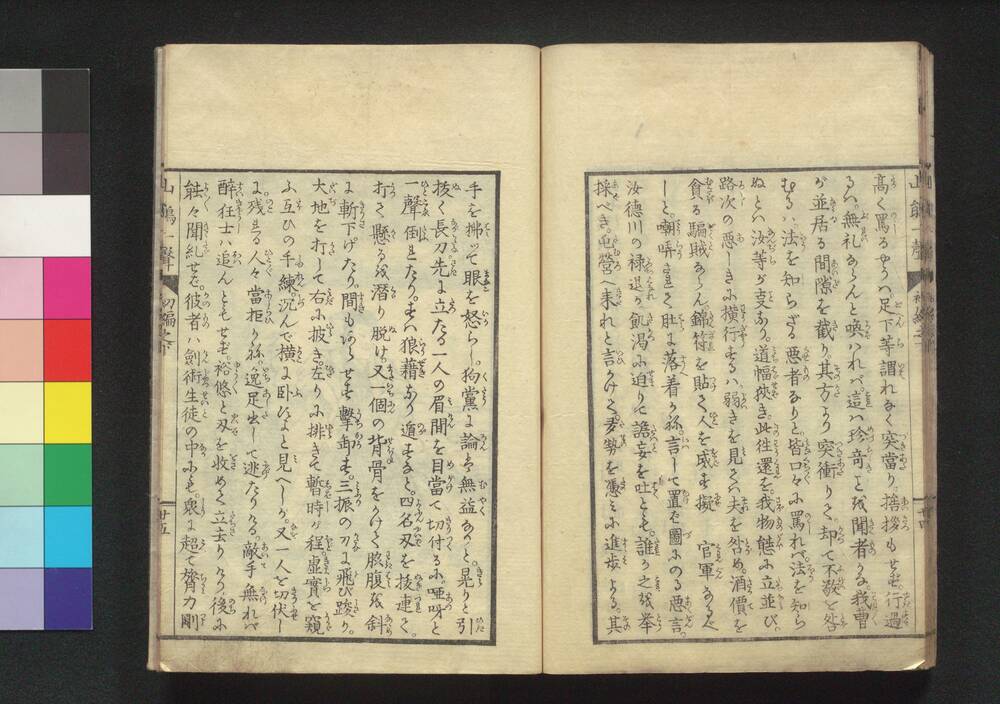 高く罵るやうハ足下等謂れなく突當り捨擦もせで行過
るハ無礼ならんと喚ハれバ這ハ珍奇ことを聞者かな我曹
が並居る間隙を截り其方より突衝りて却て不敬と咎
むるハ法を知らざる悪者なりと皆口々に罵れバ法を知ら
ぬとハ汝等が支なり道幅狭き此往還を我物態に立並び
路次の悪しきに横行するハ弱きを見てハ夫を咎め酒價を
貪る騙賊ならん錦符を貼て人を威す擬 官軍なるべ
しと嘲弄されて肚に落着かね言して置ば圖にのる悪言
汝徳川の禄退が飢渇に迫りて譫妄を吐とも誰か之を挙
採べき屯營へ来れと言かけて多勢を憑みに進歩よる其
手を拂ツて眼を怒らし狗黨に論ハ無益なりと晃りと引
抜く長刀先に立たる一人の眉間を目當て切付るに唖呀と
一聲倒れたりすハ狼藉なり遁すなと四名刃を抜連て
打て懸るを潜り脱け又一個の背骨をかけて脇腹を斜
に斬下げたり間もあらせず撃却す三振の刀に飛び踆り
大地を打して右に披き左りに排きて暫時が程虚實を窺
ふ互ひの手練沉んで横に臥ひよと見へしが又一人を切伏し
に残れる人々當拒りかね逸足出して逃たりける敵手無れバ
醉狂士ハ追んともせず裕悠と刃を收めて立去りける後に
能々聞糺せば彼者ハ劍術生徒の中にも衆に超て膂力剛
山鵑一聲
初編之下
廿四
廿五